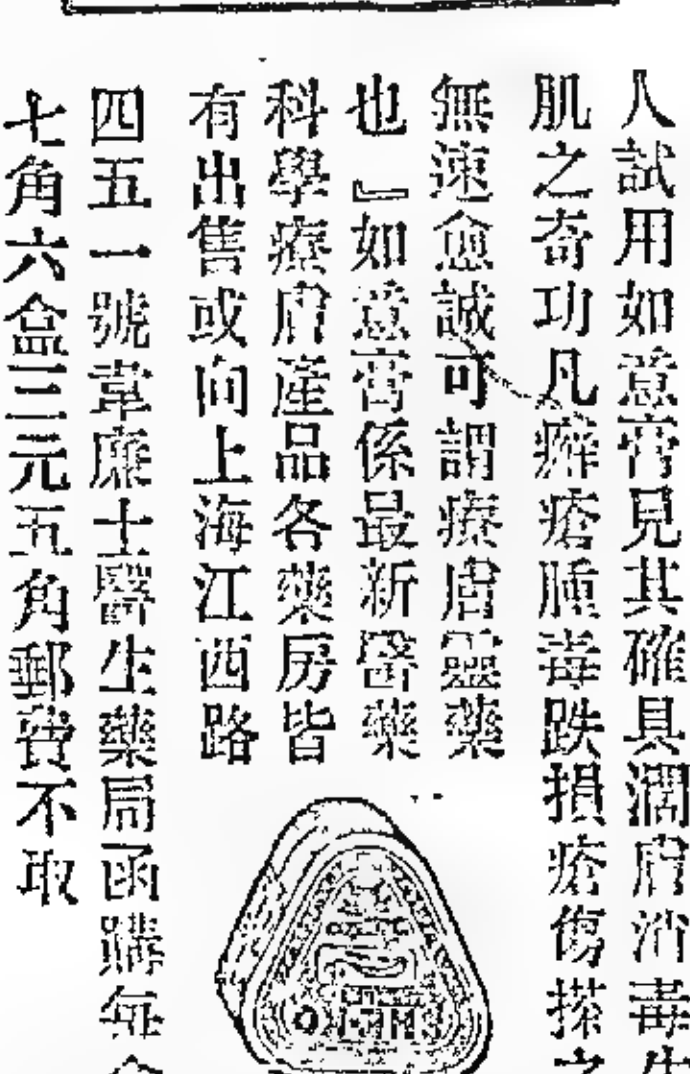 人試用如意膏見其確具潤膚消毒生
肌之奇功凡癬瘡腫毒跌損瘡傷搽之
無速愈誠可謂療膚靈藥
也』如意膏係最新醫藥
科學療膚產品各藥房皆
有出售或向上海江西路
四五一號韋廉士醫生藥局函購每
七角六盒三元五角郵費不取